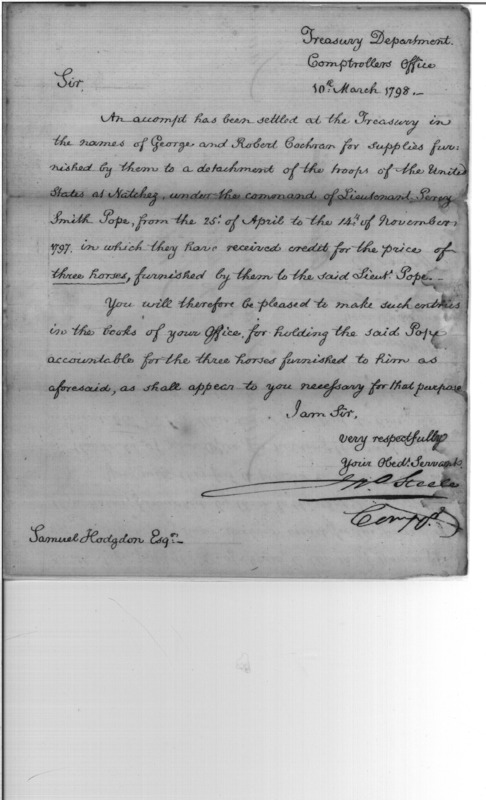 Treasury Department.
Comptrollers Office
10th March 1798.-
Sir.
An accompt has been settled at the Treasury in
the names of George and Robert Cochran for supplies fur-
nished by them to a detachment of the troops of the United
States at Natchez, under the command of Lieutenant Percy
Smith Pope, from the 25th of April to the 14th of November
1797. in which they have received credit for the price of
three horses, furnished by them to the said Lieut. Pope.-
You will therefore be pleased to make such entries
in the books of your Office, for holding the said Pope
accountable for the three horses furnished to him as
aforesaid, as shall appear to you necessary for that purpose
I am Sir,
very respectfully
Your Obedt. Servant
Jno Steele
Compr.
Samuel Hodgdon Esqr.-